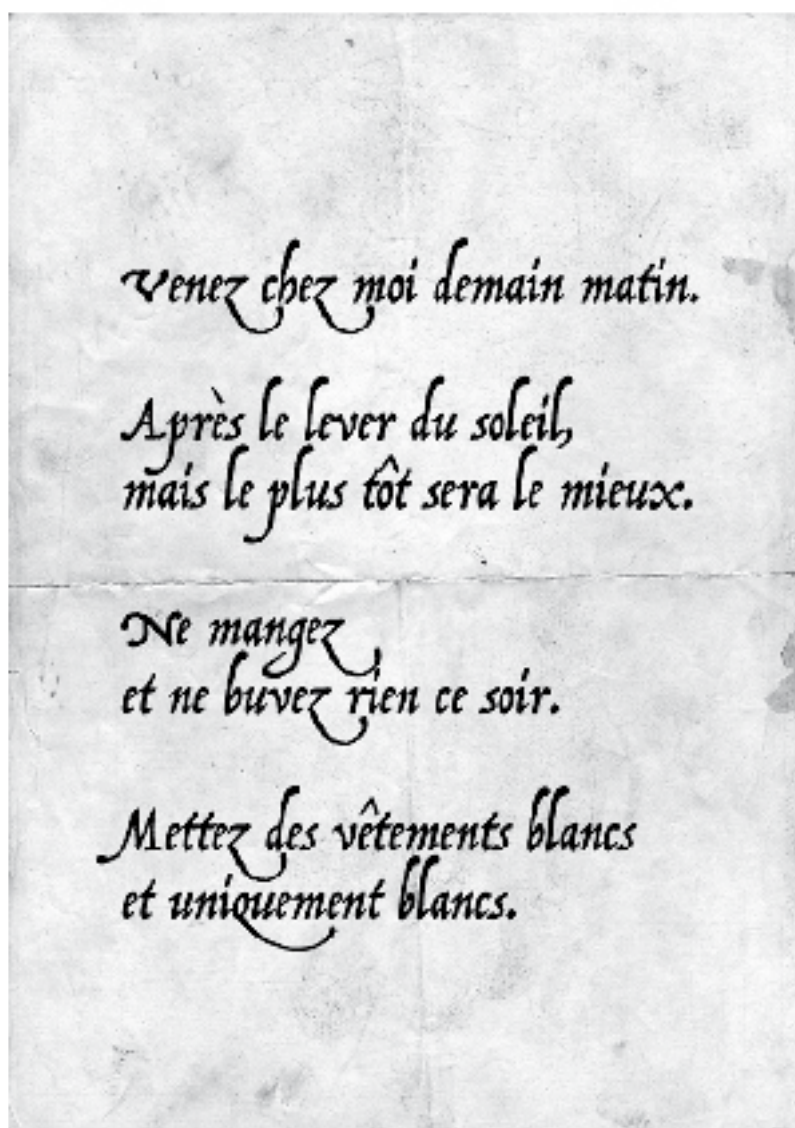 Venez chez moi demain matin.
Après le lever du soleil,
mais le plus tôt sera le mieux.
Ne mangez
et ne buvez rien ce soir.
Mettez des vêtements blancs
et uniquement blancs.